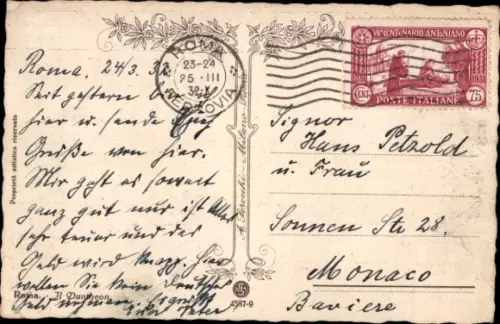 Roma. 24/3. 32.
Seit gestern
hier u. sende
Grüße von hier.
Mir geht es soweit
ganz gut nur ist alles
sehr teuer und das
Geld wird knapp. Hier
wollen Sie kein Deutsches
Geld nehmen.
Peter
Proprietà artistica riservata
Roma - Il Pantheon
A. Scrocchi - Milano
4587-9
ROMA
23-24
25·III
32 X
FERROVIA
VII CENTENARIO ANTONIANO
CENT
75
POSTE ITALIANE
Signor
Hans Petzold
u. Frau
Sonnen Str 28.
Monaco
Baviere